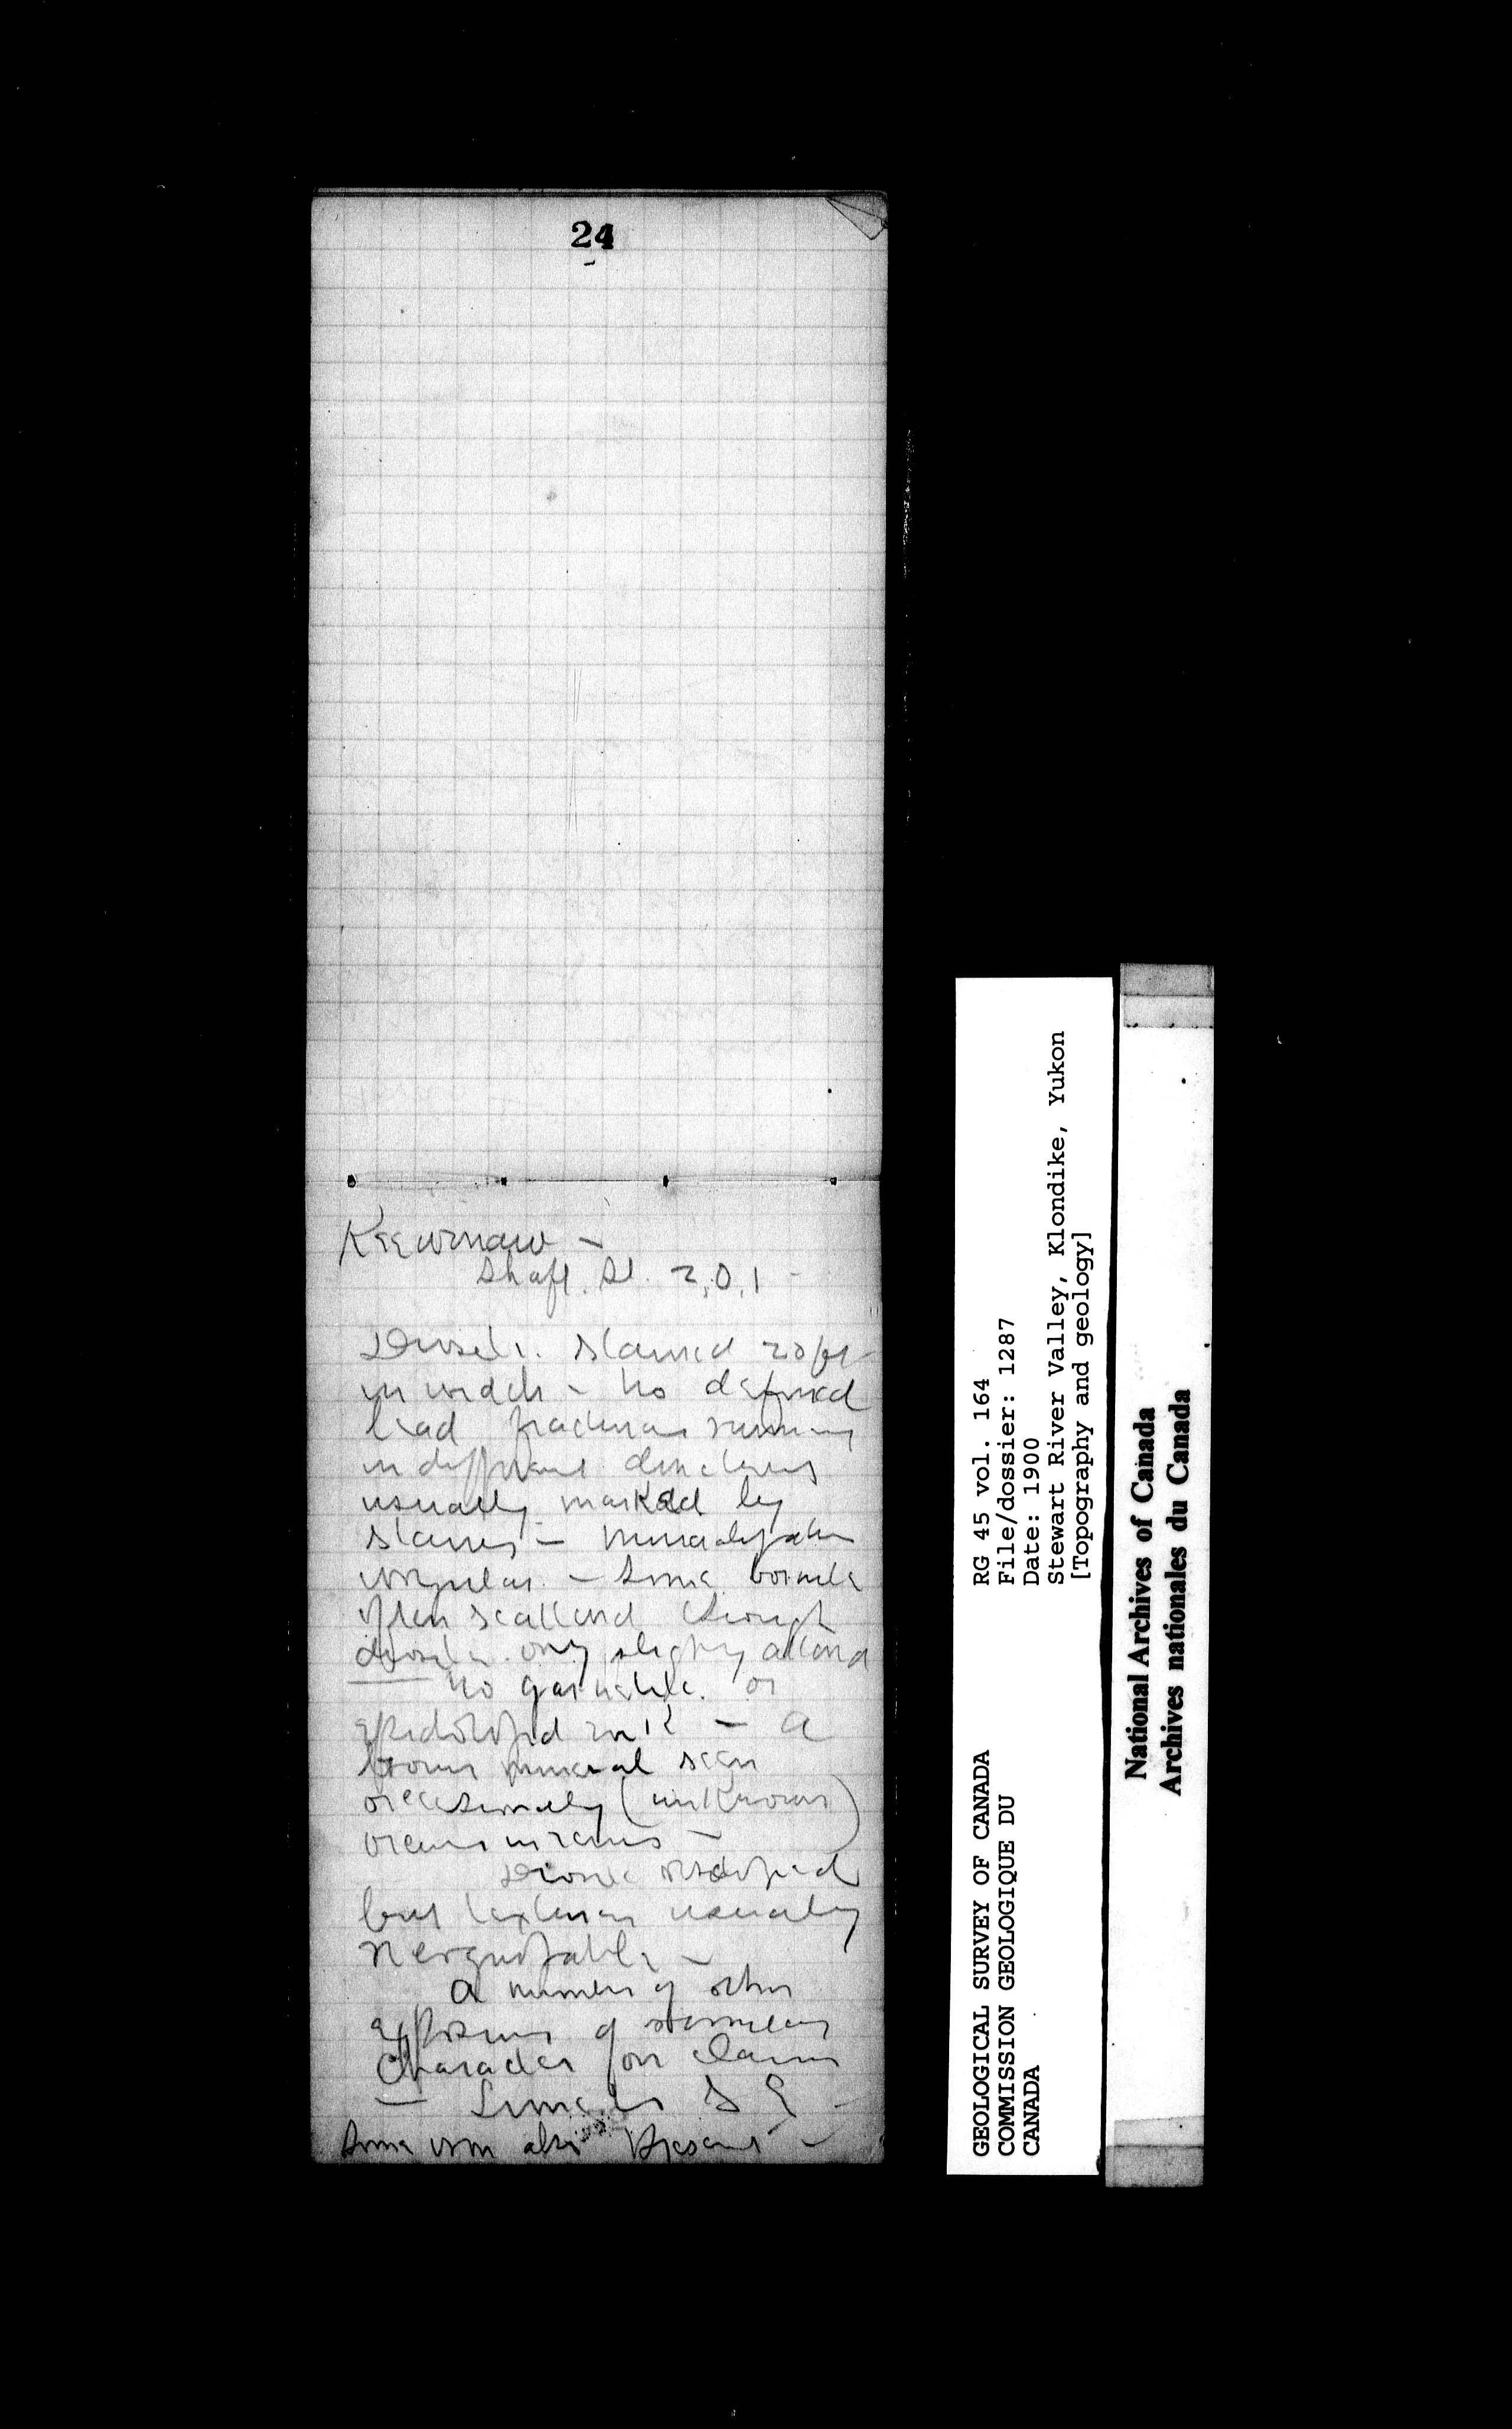 24
Keewenaw –
Shaft. St. 2,0,1 –
Diorite. Stained 20 ft
in width – No defined
lead fractures running
in different directions
usually marked by
stains – Mineralization
irregular. – Some bornite
often scattered through
diorite only slightly altered
No garnetite. or
epidotized rock – A
brown mineral seen
occasionally (unknown)
occurs in veins –
Diorite
but texture usually
recognizable –
A number of other
exposures of similar
character on claim
– S E –
Some iron also present –
GEOLOGICAL SURVEY OF CANADA
COMMISSION GEOLOGIQUE DU
CANADA
RG 45 vol. 164
File/dossier: 1287
Date: 1900
Stewart River Valley, Klondike, Yukon
[Topography and geology]
National Archives of Canada
Archives nationales du Canada